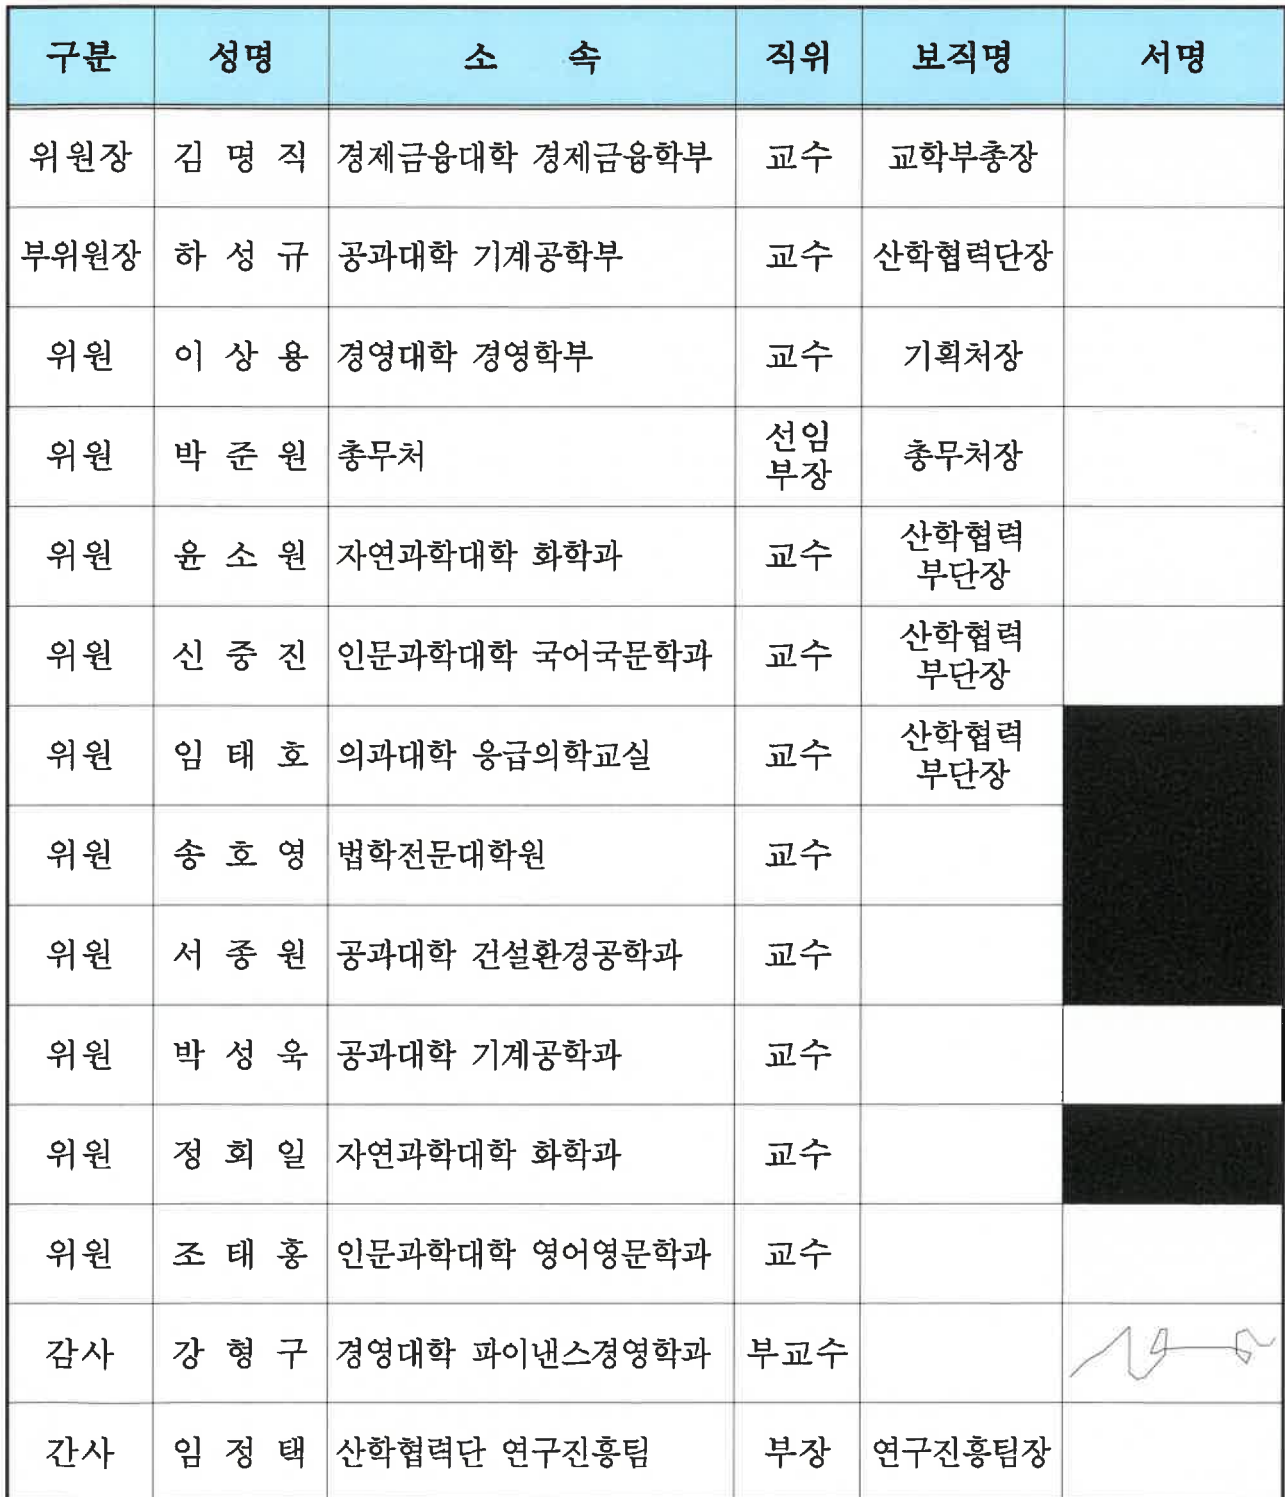 구분 성명 소 속 직위 보직명 서명
위원장 김 명 직 경제금융대학 경제금융학부 교수 교학부총장
부위원장 하 성 규 공과대학 기계공학부 교수 산학협력단장
위원 이 상 용 경영대학 경영학부 교수 기획처장
위원 박 준 원 총무처 선임 부장 총무처장
위원 윤 소 원 자연과학대학 화학과 교수 산학협력 부단장
위원 신 중 진 인문과학대학 국어국문학과 교수 산학협력 부단장
위원 임 태 호 의과대학 응급의학교실 교수 산학협력 부단장
위원 송 호 영 법학전문대학원 교수
위원 서 종 원 공과대학 건설환경공학과 교수
위원 박 성 욱 공과대학 기계공학과 교수
위원 정 희 일 자연과학대학 화학과 교수
위원 조 태 홍 인문과학대학 영어영문학과 교수
감사 강 형 구 경영대학 파이낸스경영학과 부교수
간사 임 정 택 산학협력단 연구진흥팀 부장 연구진흥팀장